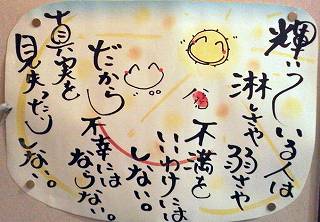 輝いている人は
淋しさや弱さや
不満を
いいわけには
しない。
だから
不幸には
ならない。
真実を
見失ったり
しない。